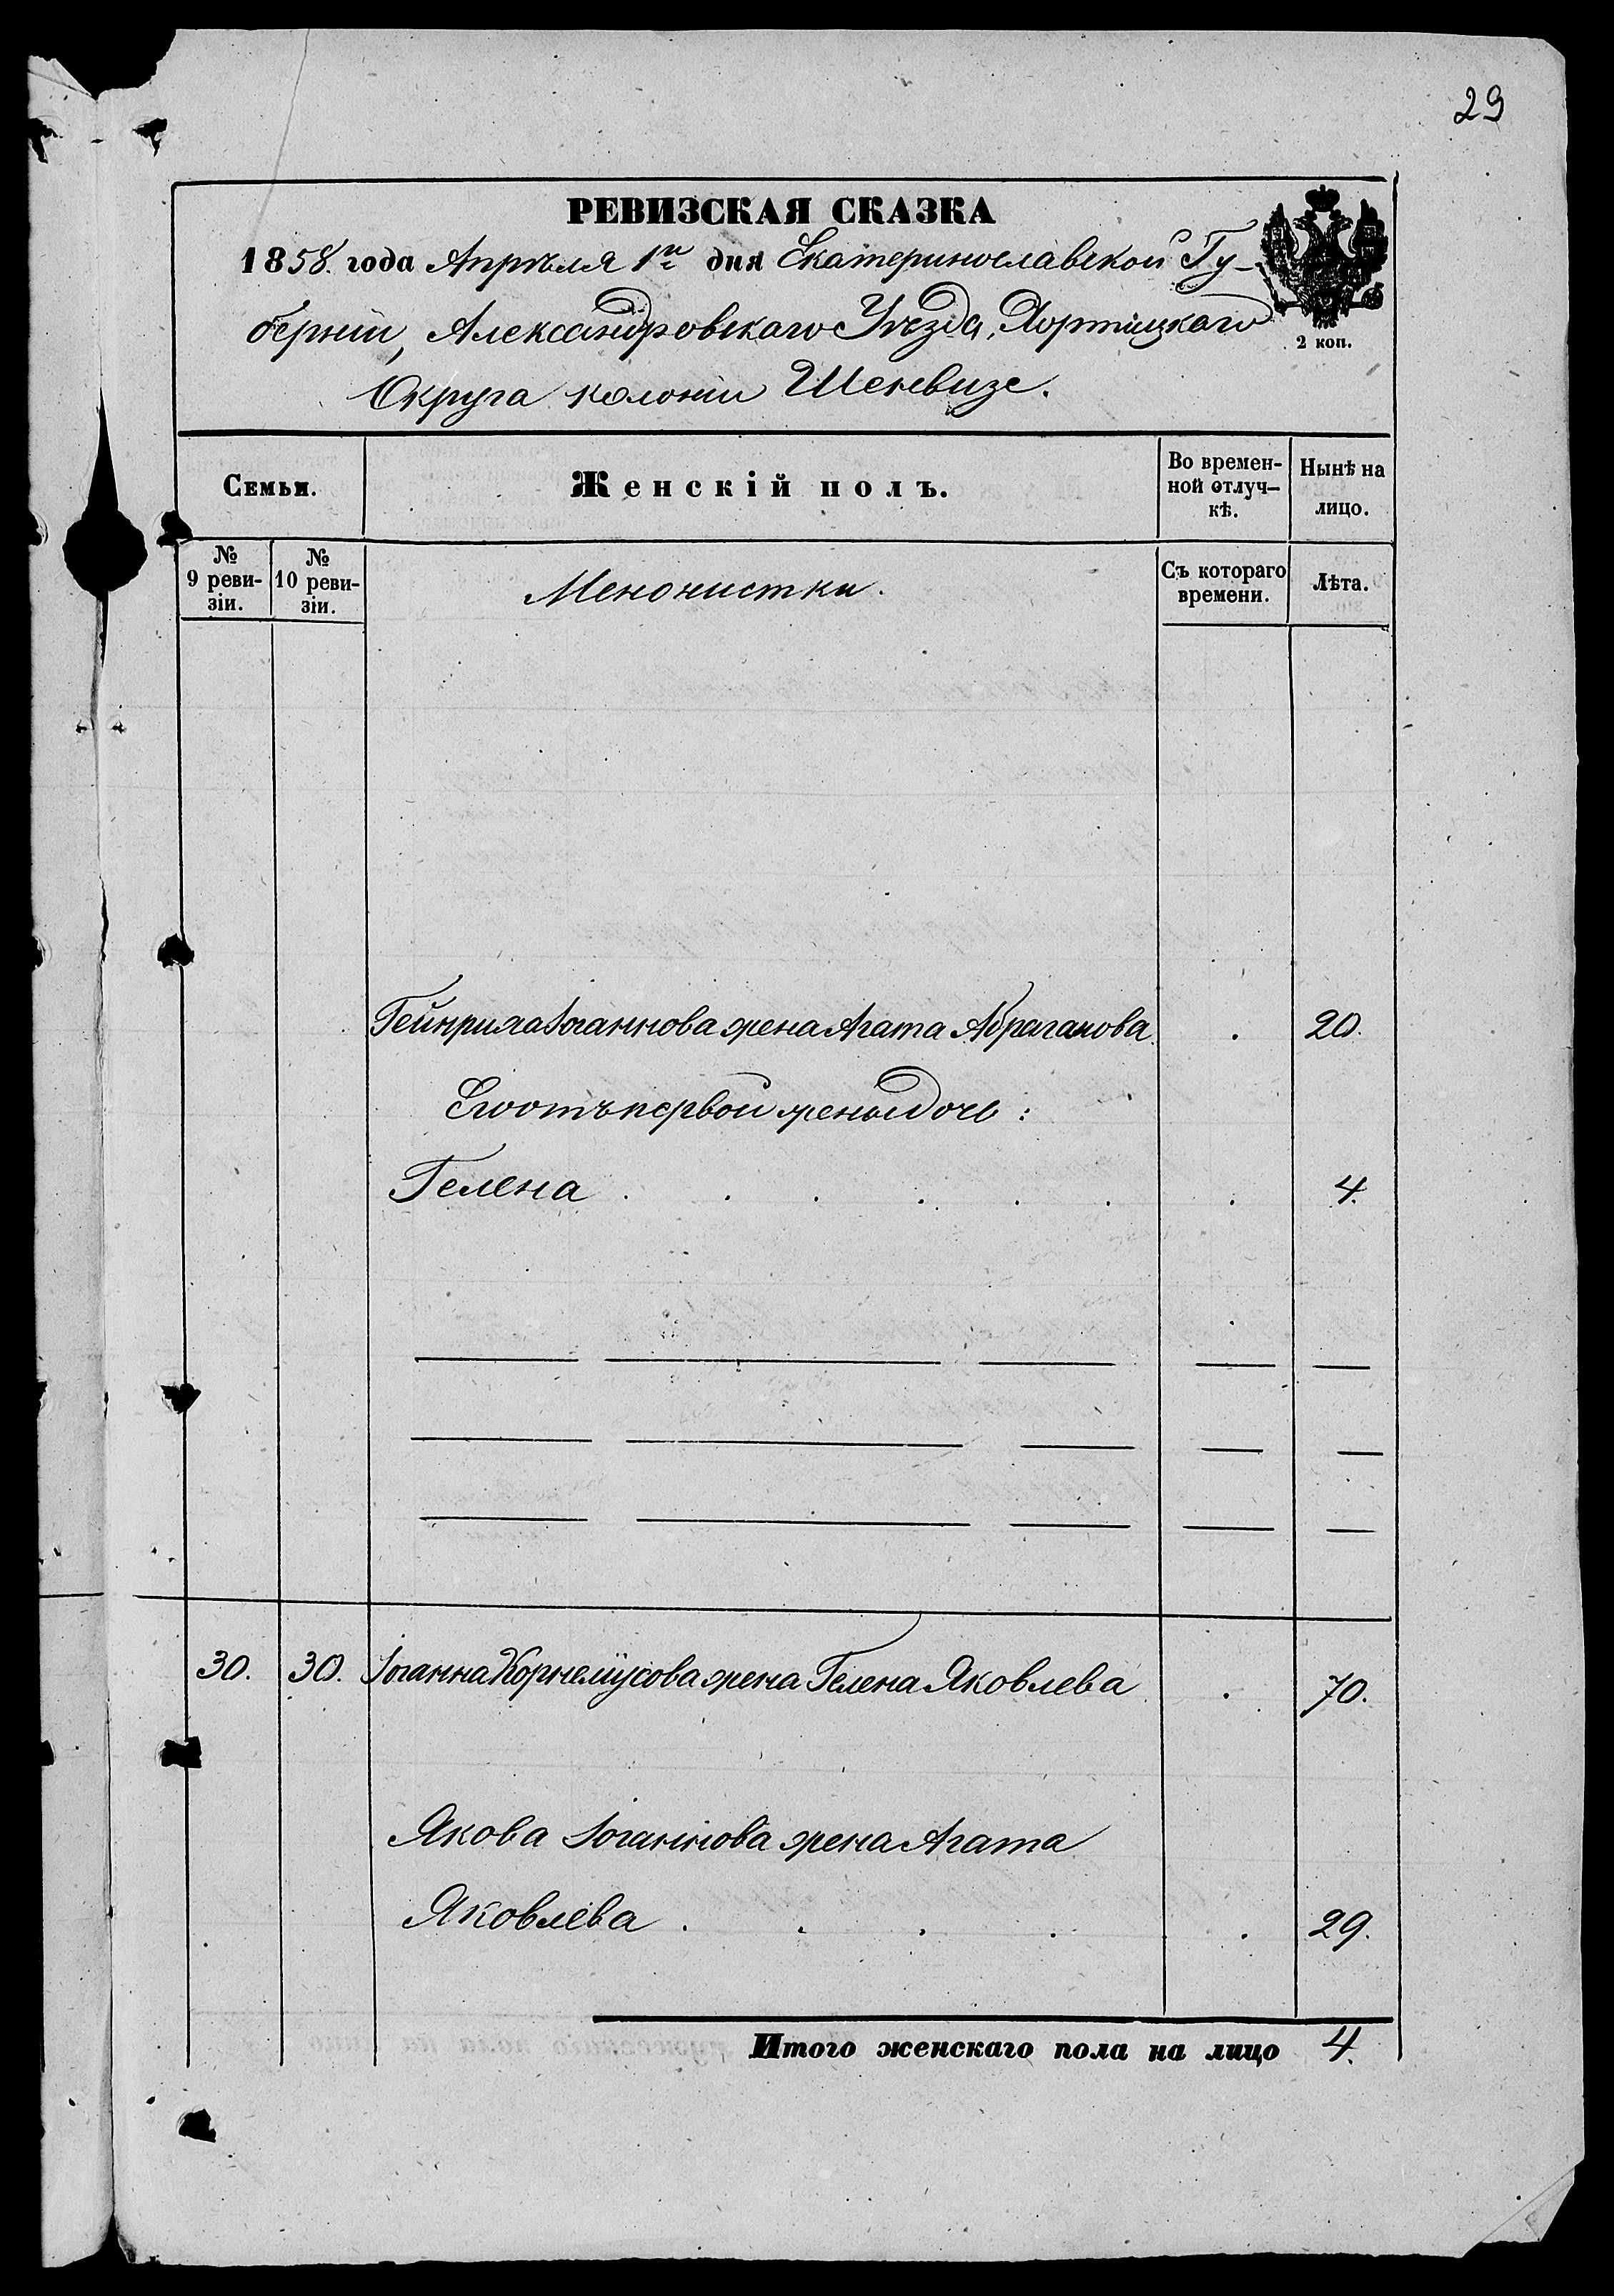 29
РЕВИЗСКАЯ СКАЗКА
1858. года Апрѣля 1го дня Екатеринославской Гу-
берніи, Александровскаго Уѣзда, Хортицкаго
2 коп.
Округа колоніи Шенвизе.
Семьи. Женскій полъ. Во времен-ной отлуч-кѣ. Нынѣ на лицо.
№ 9 реви-зіи. № 10 реви-зіи. Менонистки. Съ котораго времени. Лѣта.
Гейнриха Іоганнова жена Агата Абрагамова . 20.
Его отъ первой жены дочь:
Гелена . . . . . . . 4.
30. 30. Іоганна Корнеліусова жена Гелена Яковлева . 70.
Якова Іоганнова жена Агата
Яковлева . . . . . 29.
Итого женскаго пола на лицо 4.